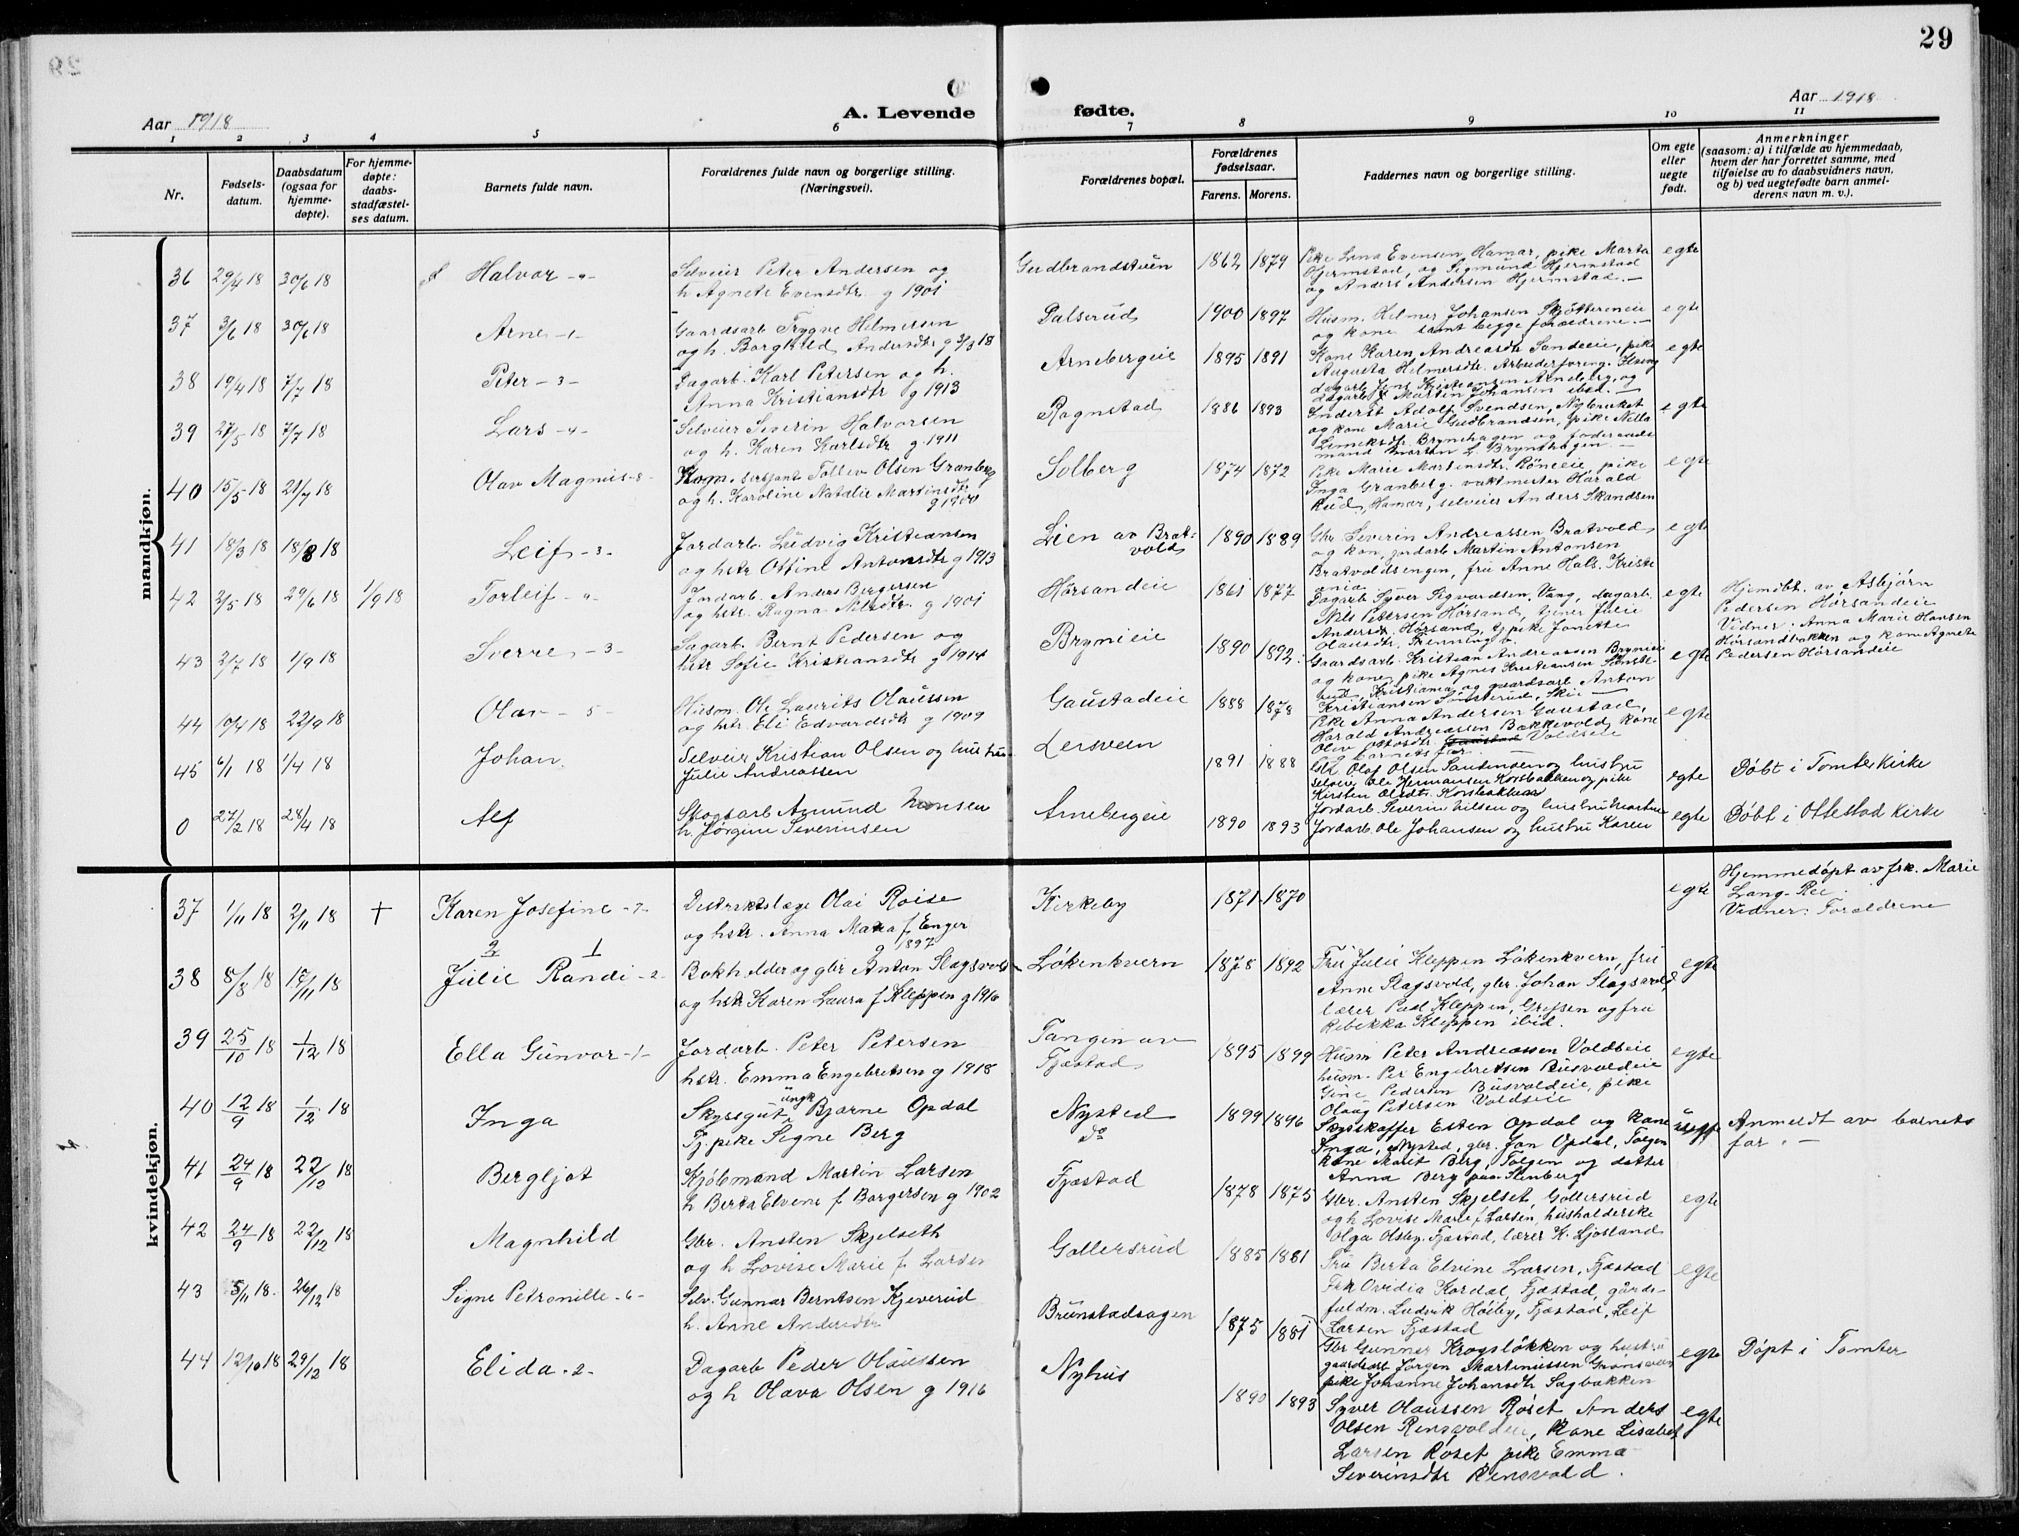 29
Aar 1918
A. Levende fødte.
Aar 1918
1 2 3 4 5 6 7 8 9 10 11
Nr.
Fødsels-
datum.
Daabsdatum
(ogsaa for
hjemme-
døpte).
For hjemme-
døpte:
daabs-
stadfæstel-
ses datum.
Barnets fulde navn.
Forældrenes fulde navn og borgerlige stilling.
(Næringsvei).
Forældrenes bopæl.
Forældrenes
fødselsaar.
Farens. Morens.
Faddernes navn og borgerlige stilling.
Om egte
eller
uegte
født.
Anmerkninger
(saasom: a) i tilfælde av hjemmedaab,
hvem der har forrettet samme, med
tilføielse av to daabsvidners navn,
og b) ved uegtefødte barn anmel-
derens navn m. v.).
mandkjøn.
36 29/4 18 30/6 18 Halvor
Selveier Peter Andersen og
h Agnete Evensdtr. g 1901
Gudbrandstuen 1862 1879
Pike Lina Evensen, Hamar, pike Marta
Hjermstad, og Sigmund Hjermstad
og Anders Andersen Hjermstad.
egte
37 3/6 18 30/6 18 Arne -1-
Gaardsarb Trygve Hilmersen
og h. Borghild Andersdtr g 3/3 18
Palserud 1900 1897
Husm. Hilmer Johansen
og kone samt begge forældrene
egte
38 19/4 18 7/7 18 Peter -3-
Dagarb. Karl Petersen og h.
Anna Kristiansdtr g 1913
Arnebergeie 1895 1891
Kone Karen Andreasdtr Sandeeie, pike
Augusta Hilmersdtr. Arbeiderforening.
dagarb Jens Kristiansen Arneberg, og
dagarb Martin Johansen ibid.
egte
39 27/5 18 7/7 18 Lars -4-
Selveier Severin Halvorsen
og h. Karen Karlsdtr g 1911
Ragnstad 1886 1893
Inderst Adolf Svendsen, Nybruket
og kone Marie Gudbrandsen, pike Nilla
Brynihagen og foderaads
mand Morten L Brynihagen
egte
40 15/5 18 21/7 18 Olav Magnus -8-
Kogn. sersjant Tollev Olsen Granberg
og h. Karoline Natalie Martinsdtr
g 1900
Solberg 1874 1872
Pike Marie Martinsdtr. Rôneeie, pike
Inga Granberg. vaktmester Harald
Rud, Hamar, selveier Anders Skandsen
egte
41 18/3 18 18/8 18 Leif -3-
Jordarb. Ludvig Kristiansen
og hstr Othine Antonsdtr g 1913
Lien av Brat-
vold 1890 1889
Gbr. Severin Andreassen Bratvold
og kon, jordarb Martin Antonsen
Bratvoldsengen, fru Anne Hals. Kristi
ania
egte
42 2/5 18 29/6 18 1/9 18 Torleif
Jordarb. Anders Bergersen
og hstr. Ragna Nilsdtr. g 1901
Hørsandeie 1861 1877
Dagarb Syver Sigvardsen, Vang, dagarb.
Nils Petersen Hørsand, tjener Julie
Andersdtr Hørsand, tj pike Jonette
Olausdtr,
egte
Hjemdøbt. av Asbjørn
Pedersen Hørsandeie
Vidner: Anna Marie Hansen
Hørsandbakken og kone Agnete
Pedersen Hørsandeie
43 2/7 18 1/9 18 Sverre -3-
Sagarb. Bernt Pedersen og
hstr Sofie Kristiansdtr g 1914
Brynieie 1890 1892
Gaardsarb. Kristian Andreassen Brynieie
og kone, pike Agnes Kristiansen
Kristiania og gaardsarb Anton
Kristiansen Skie
egte
44 10/4 18 22/9 18 Olav -5-
Husm. Ole Laurits Olaussen
og hstr Eli Edvardsdtr g 1909
Gaustadeie 1888 1878
Pike Anna Andersen Gaustad,
Harald Andreassen Bakkevold, kone
Voldseie
og barnets far.
egte
45 6/1 18 1/4 18 Johan
Selveier Kristian Olsen og hustru
Julie Andreassen
Lersveen 1891 1888
Olaf Olsen og hustru
selveier Ole Hermansen Korsbakken og pike
Kirsten Olsdtr. Korsbakken
egte
Døbt i Tomter kirke
0 27/2 18 28/4 18 Alf
Skogsarb Amund Hansen
h. Jørgine Severinsen
Arnebergeie 1890 1893
Jordarb Severin Nilsen og hustru Martine
Jordarb. Ole Johansen og hustru Karen
egte
Døbt i Ottestad kirke
kvindekjøn.
37 1/11 18 2/11 18 † Karen Josefine -7-
Distriktslæge Olai Roise
og hstr. Anna Maria f Enger
g 1897
Kirkeby 1871 1870
egte
Hjemmedøpt av frk. Marie
Lang-Ree
Vidner: Forældrene
2 1
38 8/8 18 15/11 18 Julie Randi -2-
Bokholder og gbr Anton Slagsvold
og hstr Karen Laura f Kleppen g 1916
Løkenkvern 1878 1892
Fru Julie Kleppen Løkenkvern, fru
Anne Slagsvold, gbr. Johan Slagsvold
lærer Paul Kleppen, Grefsen og fru
Rebekka Kleppen ibid.
egte
39 25/10 18 1/12 18 Ella Gunvor -1-
Jordarb. Peter Petersen
hstr. Emma Engebretsen g 1918
Tangen av
Fjæstad 1895 1899
Husm Peter Andreassen Voldseie
husm. Per Engebretsen Busvoldeie
Gine Pedersen Busvoldeie, pike
Olaug Petersen Voldseie
egte
40 12/9 18 1/12 18 Inga
Skysgut ungk Bjarne Opdal
Tj. pike Signe Berg
Nysted
do 1899 1896
Skyskaffer Esten Opdal og kone
Inga, Nysted, gbr. Jon Opdal, Tolgen
kone Marit Berg, Tolgen og datter
Anna Berg paa Stenberg
uegte
Anmeldt av barnets
far. -
41 24/9 18 22/12 18 Bergljot
Kjøbmand Martin Larsen
h Berta Elvine f Borgersen g 1902
Fjæstad 1878 1875
Gbr. Ansten Skjelset Gollersrud
og h Lovise Marie f Larsen, husholderske
Olga Olsby, Fjæstad, lærer K. Ljøsland
egte
42 24/9 18 22/12 18 Magnhild
Gbr. Ansten Skjelseth
og h Lovise Marie f Larsen
Gollersrud 1885 1881
Fru Berta Elvine Larsen, Fjæstad
Frk Ovidia Kordal, Fjæstad, gårds-
fuldm. Ludvik Høiby, Fjæstad, Leif
Larsen Fjæstad
egte
43 5/11 18 26/12 18 Signe Petronille -6-
Selv. Gunnar Berntsen Kjeverud
h. Anne Andersdtr
Brunstadsagen 1875 1881
Gbr Gunnar Krogsløkken og hustru
gaardsarb Jørgen Martinussen
pike Johanne Johansdtr Sagbakken
egte
Døpt i Tomter
44 12/10 18 29/12 18 Elida -2-
Dagarb Peder Olaussen
og h Olava Olsen g 1916
Nyhus 1890 1893
Syver Olaussen Røset Anders
Olsen Rensvoldeie, kone Lisabet
Larsen Røset pike Emma
Severinsdtr Rensvold.
egte